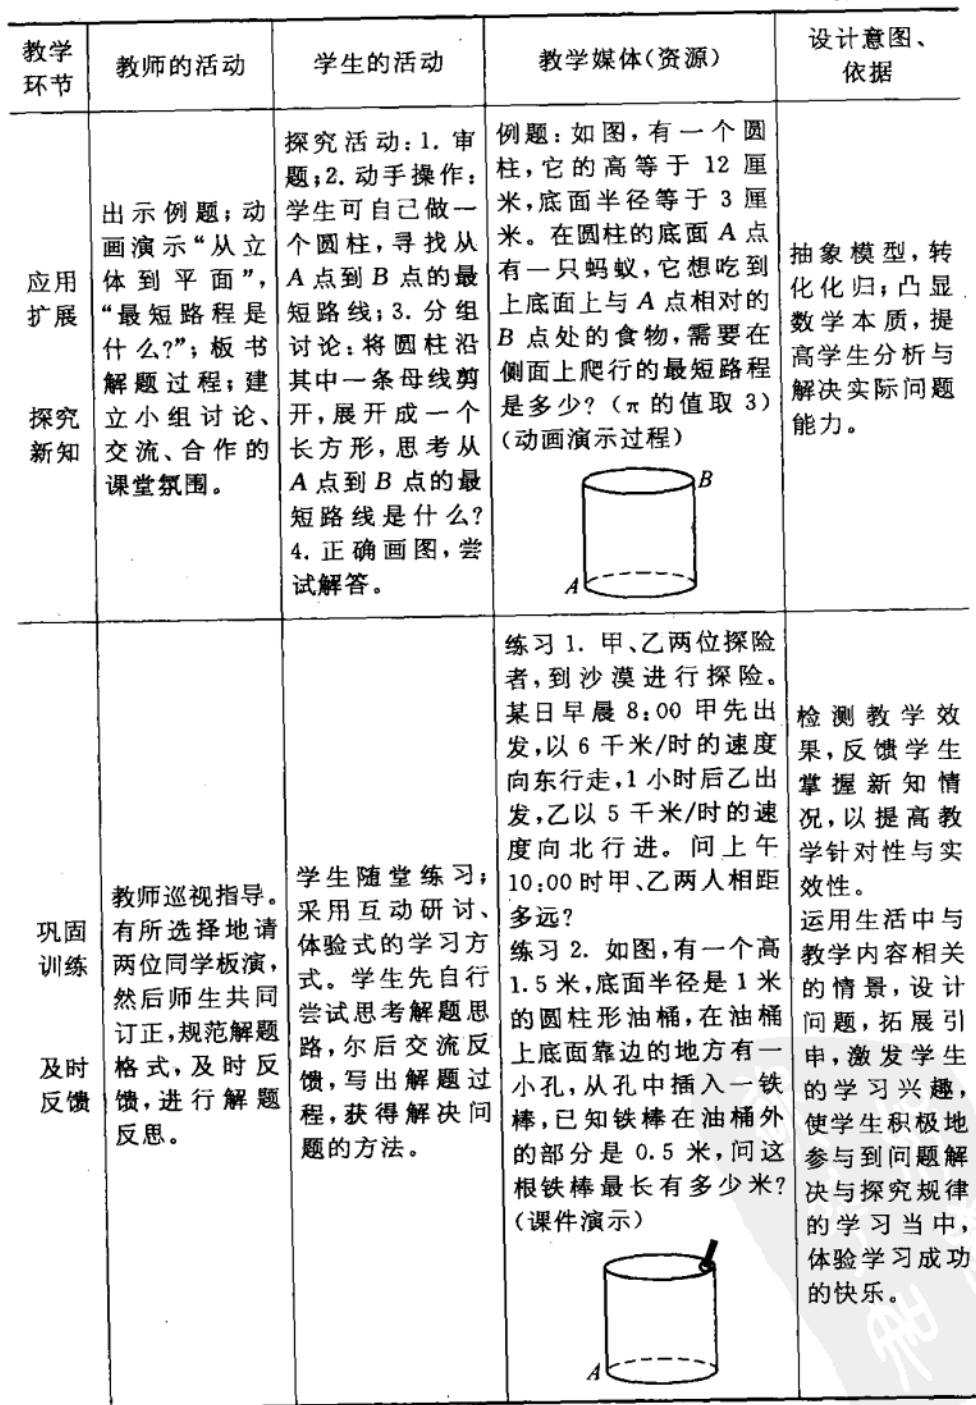 教学
环节
教师的活动
学生的活动
教学媒体(资源)
设计意图、
依据
应用
扩展
探究
新知
出示例题；动
画演示“从立
体到平面”，
“最短路程是
什么?”；板书
解题过程；建
立小组讨论、
交流、合作的
课堂氛围。
探究活动：1. 审
题；2. 动手操作：
学生可自己做一
个圆柱，寻找从
A 点到 B 点的最
短路线；3. 分组
讨论：将圆柱沿
其中一条母线剪
开，展开成一个
长方形，思考从
A 点到 B 点的最
短路线是什么?
4. 正确画图，尝
试解答。
例题：如图，有一个圆
柱，它的高等于 12 厘
米，底面半径等于 3 厘
米。在圆柱的底面 A 点
有一只蚂蚁，它想吃到
上底面上与 A 点相对的
B 点处的食物，需要在
侧面上爬行的最短路程
是多少?（π 的值取 3）
（动画演示过程）
B
A
抽象模型，转
化化归；凸显
数学本质，提
高学生分析与
解决实际问题
能力。
巩固
训练
及时
反馈
教师巡视指导。
有所选择地请
两位同学板演，
然后师生共同
订正，规范解题
格式，及时反
馈，进行解题
反思。
学生随堂练习；
采用互动研讨、
体验式的学习方
式。学生先自行
尝试思考解题思
路，尔后交流反
馈，写出解题过
程，获得解决问
题的方法。
练习 1. 甲、乙两位探险
者，到沙漠进行探险。
某日早晨 8:00 甲先出
发，以 6 千米/时的速度
向东行走，1 小时后乙出
发，乙以 5 千米/时的速
度向北行进。问上午
10:00 时甲、乙两人相距
多远?
练习 2. 如图，有一个高
1.5 米，底面半径是 1 米
的圆柱形油桶，在油桶
上底面靠边的地方有一
小孔，从孔中插入一铁
棒，已知铁棒在油桶外
的部分是 0.5 米，问这
根铁棒最长有多少米?
（课件演示）
A
检测教学效
果，反馈学生
掌握新知情
况，以提高教
学针对性与实
效性。
运用生活中与
教学内容相关
的情景，设计
问题，拓展引
申，激发学生
的学习兴趣，
使学生积极地
参与到问题解
决与探究规律
的学习当中，
体验学习成功
的快乐。